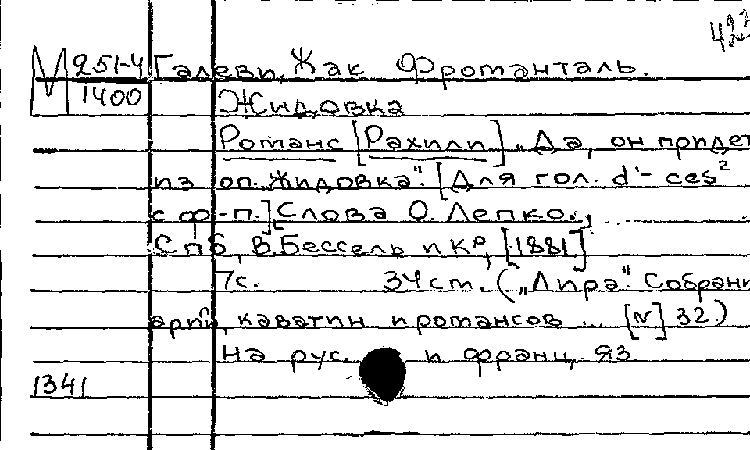 М 251-4 Галеви, Жак Фроманталь.
1400 Жидовка
Романс [Рахили] „Да, он придет
из оп. Жидовка". [Для гол. d'- ces²
с ф-п.] Слова О. Лепко.,
Спб, В. Бессель и Кº, [1881]
7с. 34 см. („Лира". Собрани
арий, каватин и романсов ... [N] 32.)
На рус. и франц. яз
1341